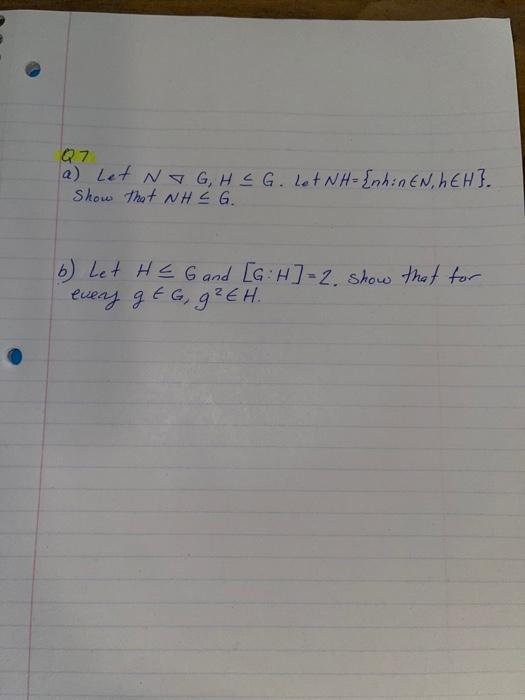 Q7
a) Let N ⊲ G, H ≤ G. Let NH={nh:n∈N,h∈H}.
Show that NH ≤ G.
b) Let H ≤ G and [G:H]=2. Show that for
every g ∈ G, g²∈H.